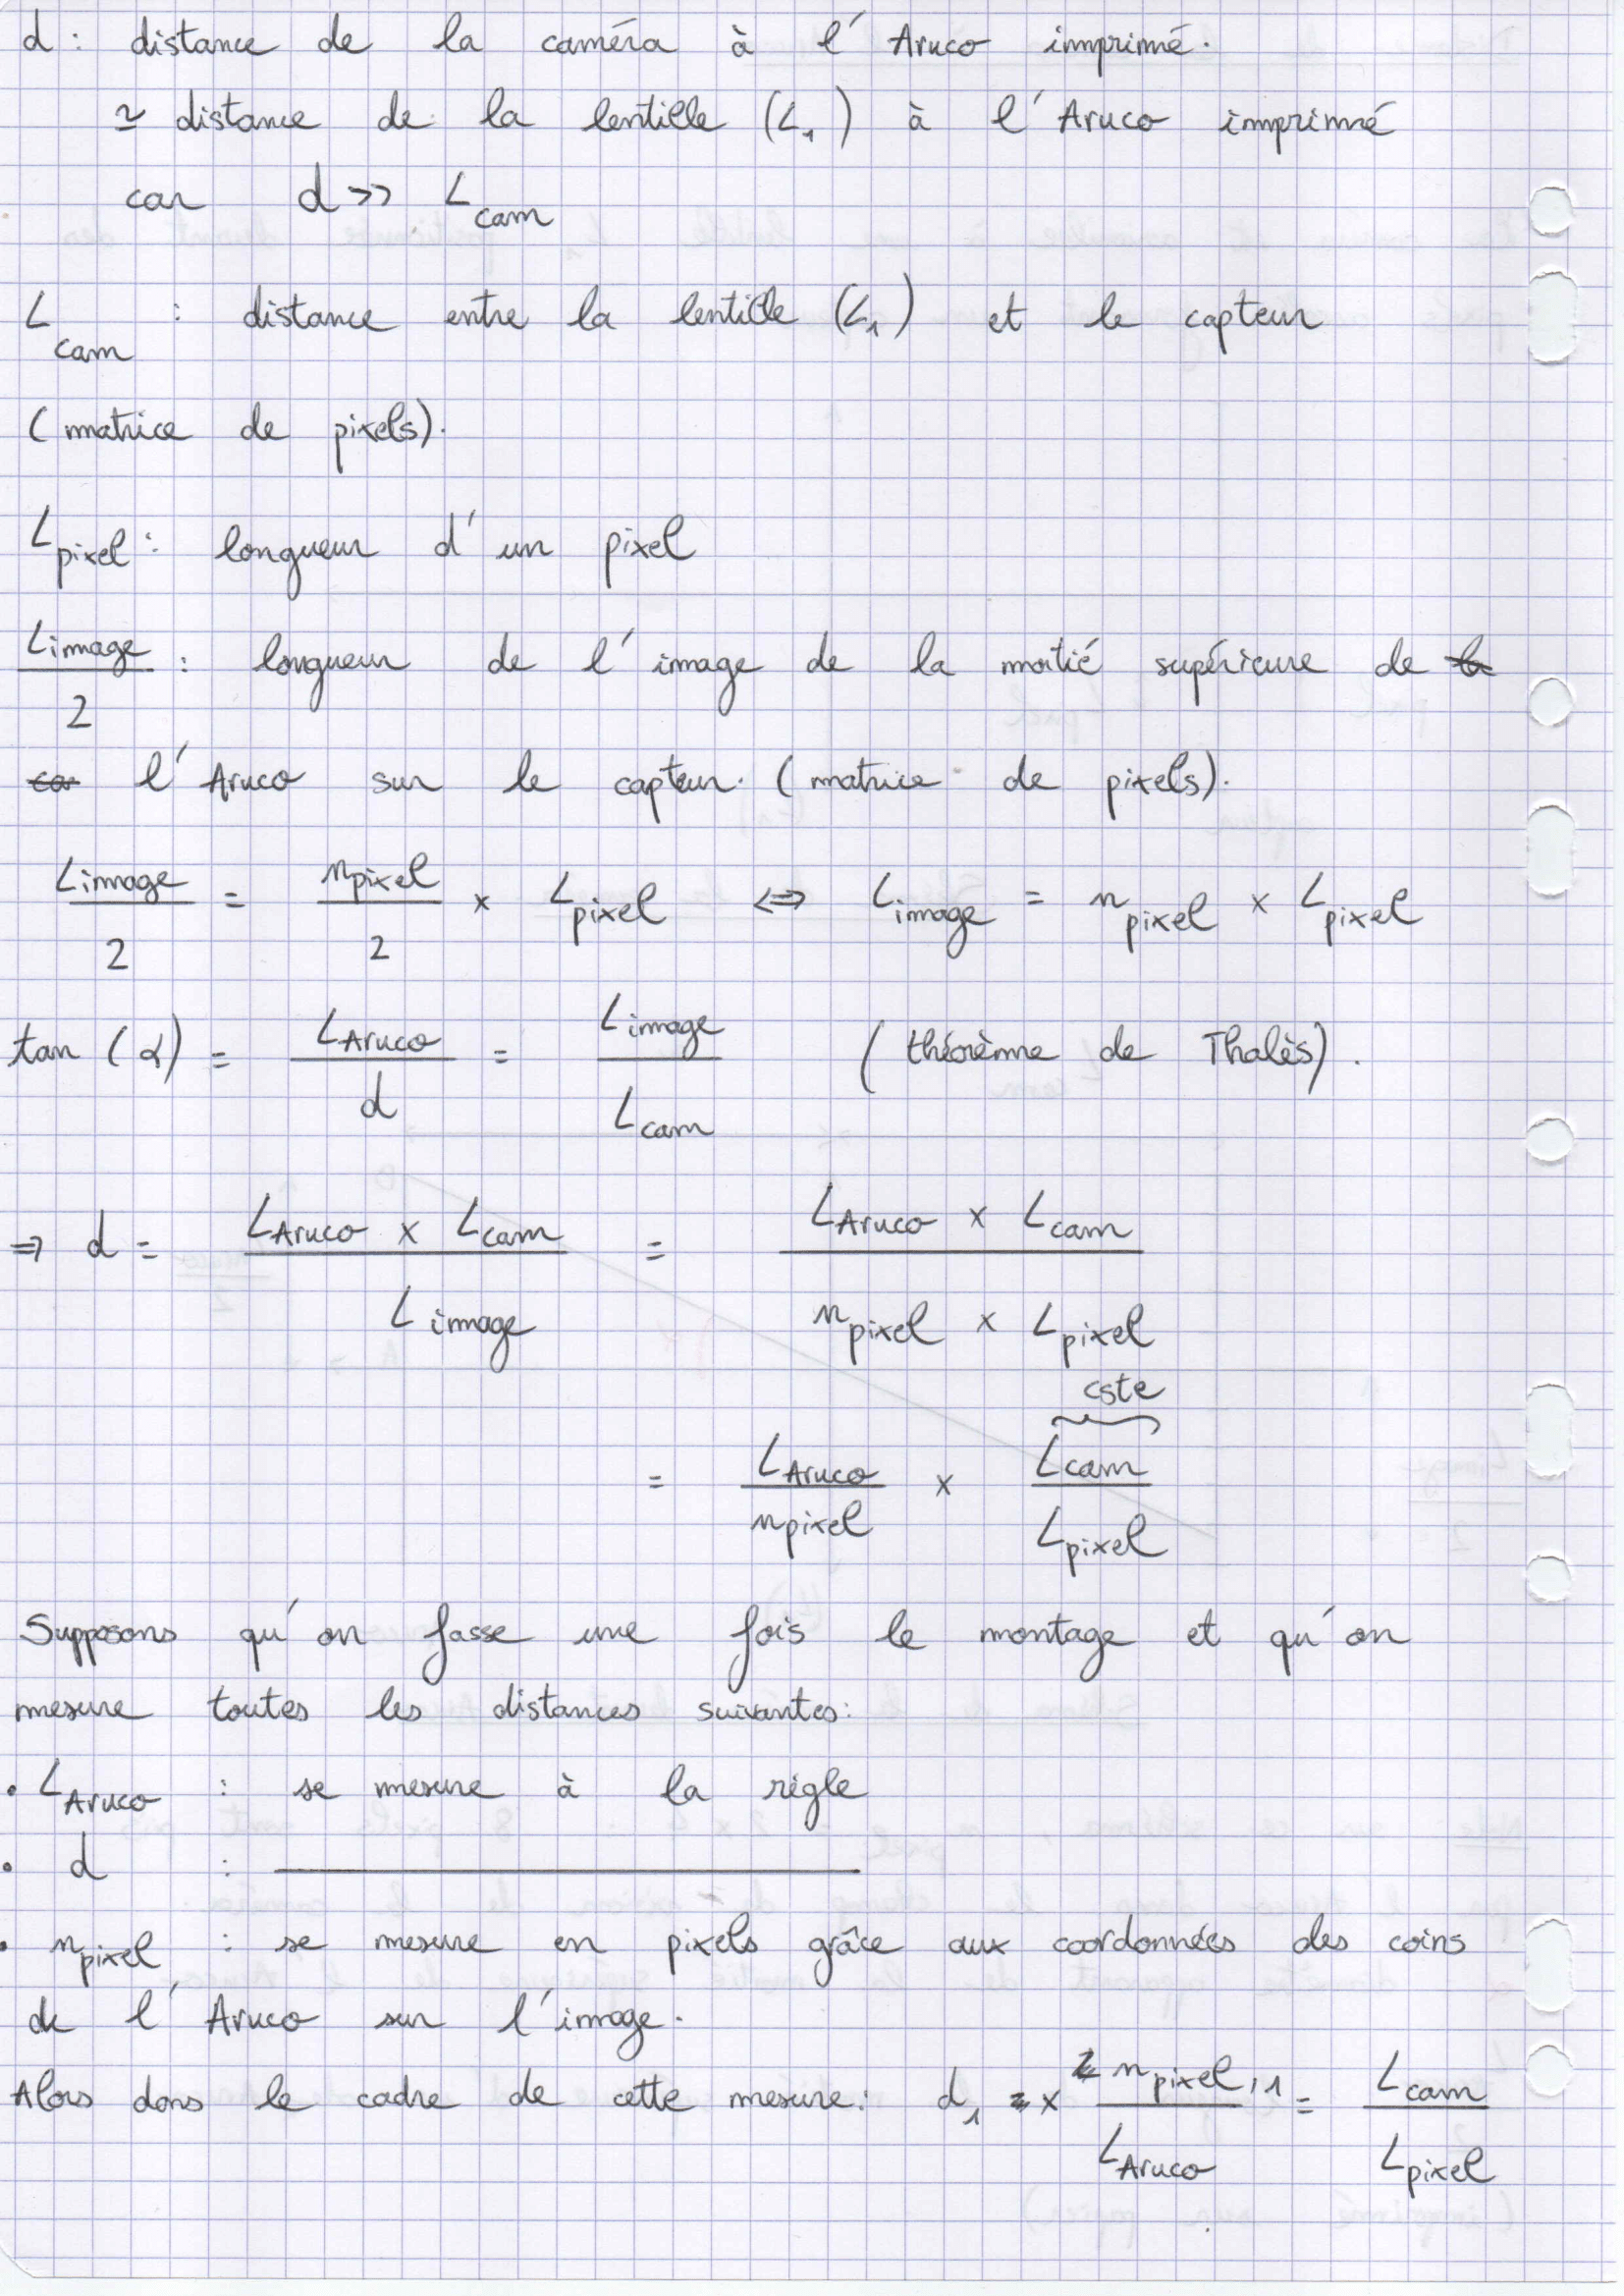 d : distance de la caméra à l'Aruco imprimé.
≃ distance de la lentille (L₁) à l'Aruco imprimé
car d >> L_cam
L_cam : distance entre la lentille (L₁) et le capteur
(matrice de pixels).
L_pixel : longueur d'un pixel
L_image / 2 : longueur de l'image de la moitié supérieure de ~~la~~
~~ca~~ l'Aruco sur le capteur. (matrice de pixels).
L_image / 2 = n_pixel / 2 × L_pixel ⇔ L_image = n_pixel × L_pixel
tan (α) = L_Aruco / d = L_image / L_cam (théorème de Thalès).
⇒ d = (L_Aruco × L_cam) / L_image = (L_Aruco × L_cam) / (n_pixel × L_pixel)
cste
= L_Aruco / n_pixel × L_cam / L_pixel
Supposons qu'on fasse une fois le montage et qu'on
mesure toutes les distances suivantes :
• L_Aruco : se mesure à la règle
• d : ————————
• n_pixel : se mesure en pixels grâce aux coordonnées des coins
de l'Aruco sur l'image.
Alors dans le cadre de cette mesure : d₁ × n_pixel,1 / L_Aruco = L_cam / L_pixel